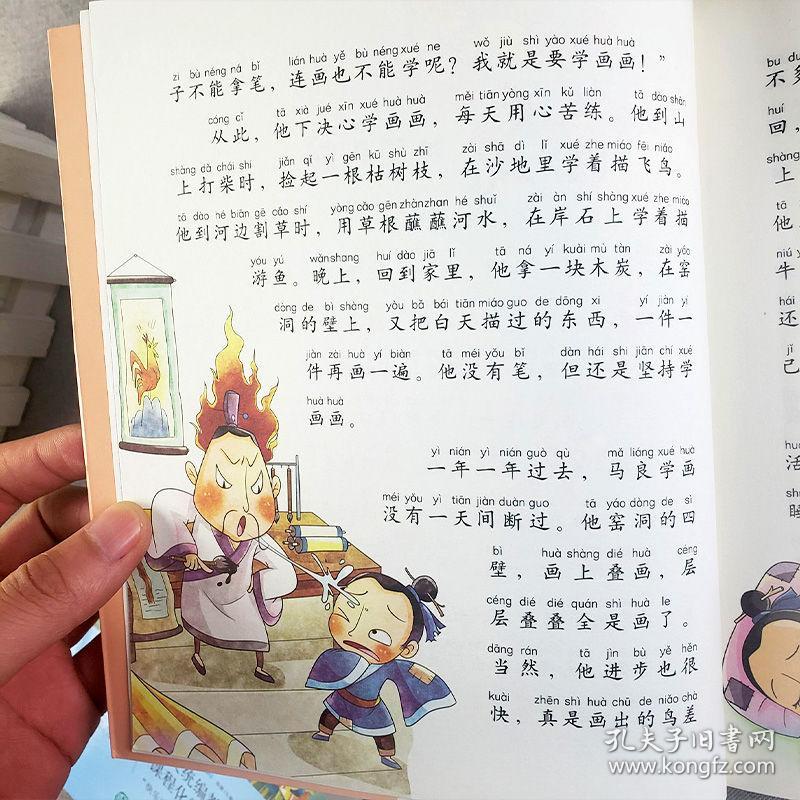 zi bù néng ná bǐ lián huà yě bù néng xué ne wǒ jiù shì yào xué huà huà
子不能拿笔，连画也不能学呢？我就是要学画画！”
cóng cǐ tā xià jué xīn xué huà huà měi tiān yòng xīn kǔ liàn tā dào shān
从此，他下决心学画画，每天用心苦练。他到山
shàng dǎ chái shí jiǎn qǐ yì gēn kū shù zhī zài shā dì lǐ xué zhe miáo fēi niǎo
上打柴时，捡起一根枯树枝，在沙地里学着描飞鸟。
tā dào hé biān gē cǎo shí yòng cǎo gēn zhàn zhan hé shuǐ zài àn shí shàng xué zhe miáo
他到河边割草时，用草根蘸蘸河水，在岸石上学着描
yóu yú wǎn shang huí dào jiā lǐ tā ná yí kuài mù tàn zài yáo
游鱼。晚上，回到家里，他拿一块木炭，在窑
dòng de bì shàng yòu bǎ bái tiān miáo guo de dōng xi yí jiàn yi
洞的壁上，又把白天描过的东西，一件一
jiàn zài huà yí biàn tā méi yǒu bǐ dàn hái shi jiān chí xué
件再画一遍。他没有笔，但还是坚持学
huà huà
画画。
yì nián yì nián guò qù mǎ liáng xué huà
一年一年过去，马良学画
méi yǒu yì tiān jiàn duàn guo tā yáo dòng de sì
没有一天间断过。他窑洞的四
bì huà shàng dié huà céng
壁，画上叠画，层
céng dié dié quán shì huà le
层叠叠全是画了。
dāng rán tā jìn bù yě hěn
当然，他进步也很
kuài zhēn shì huà chū de niǎo chà
快，真是画出的鸟差
bu
不
huí
回，
shàng
上
tā
他
niú
牛
hái
还
jǐ
己
活
睡
孔夫子旧书网
www.kongfz.com